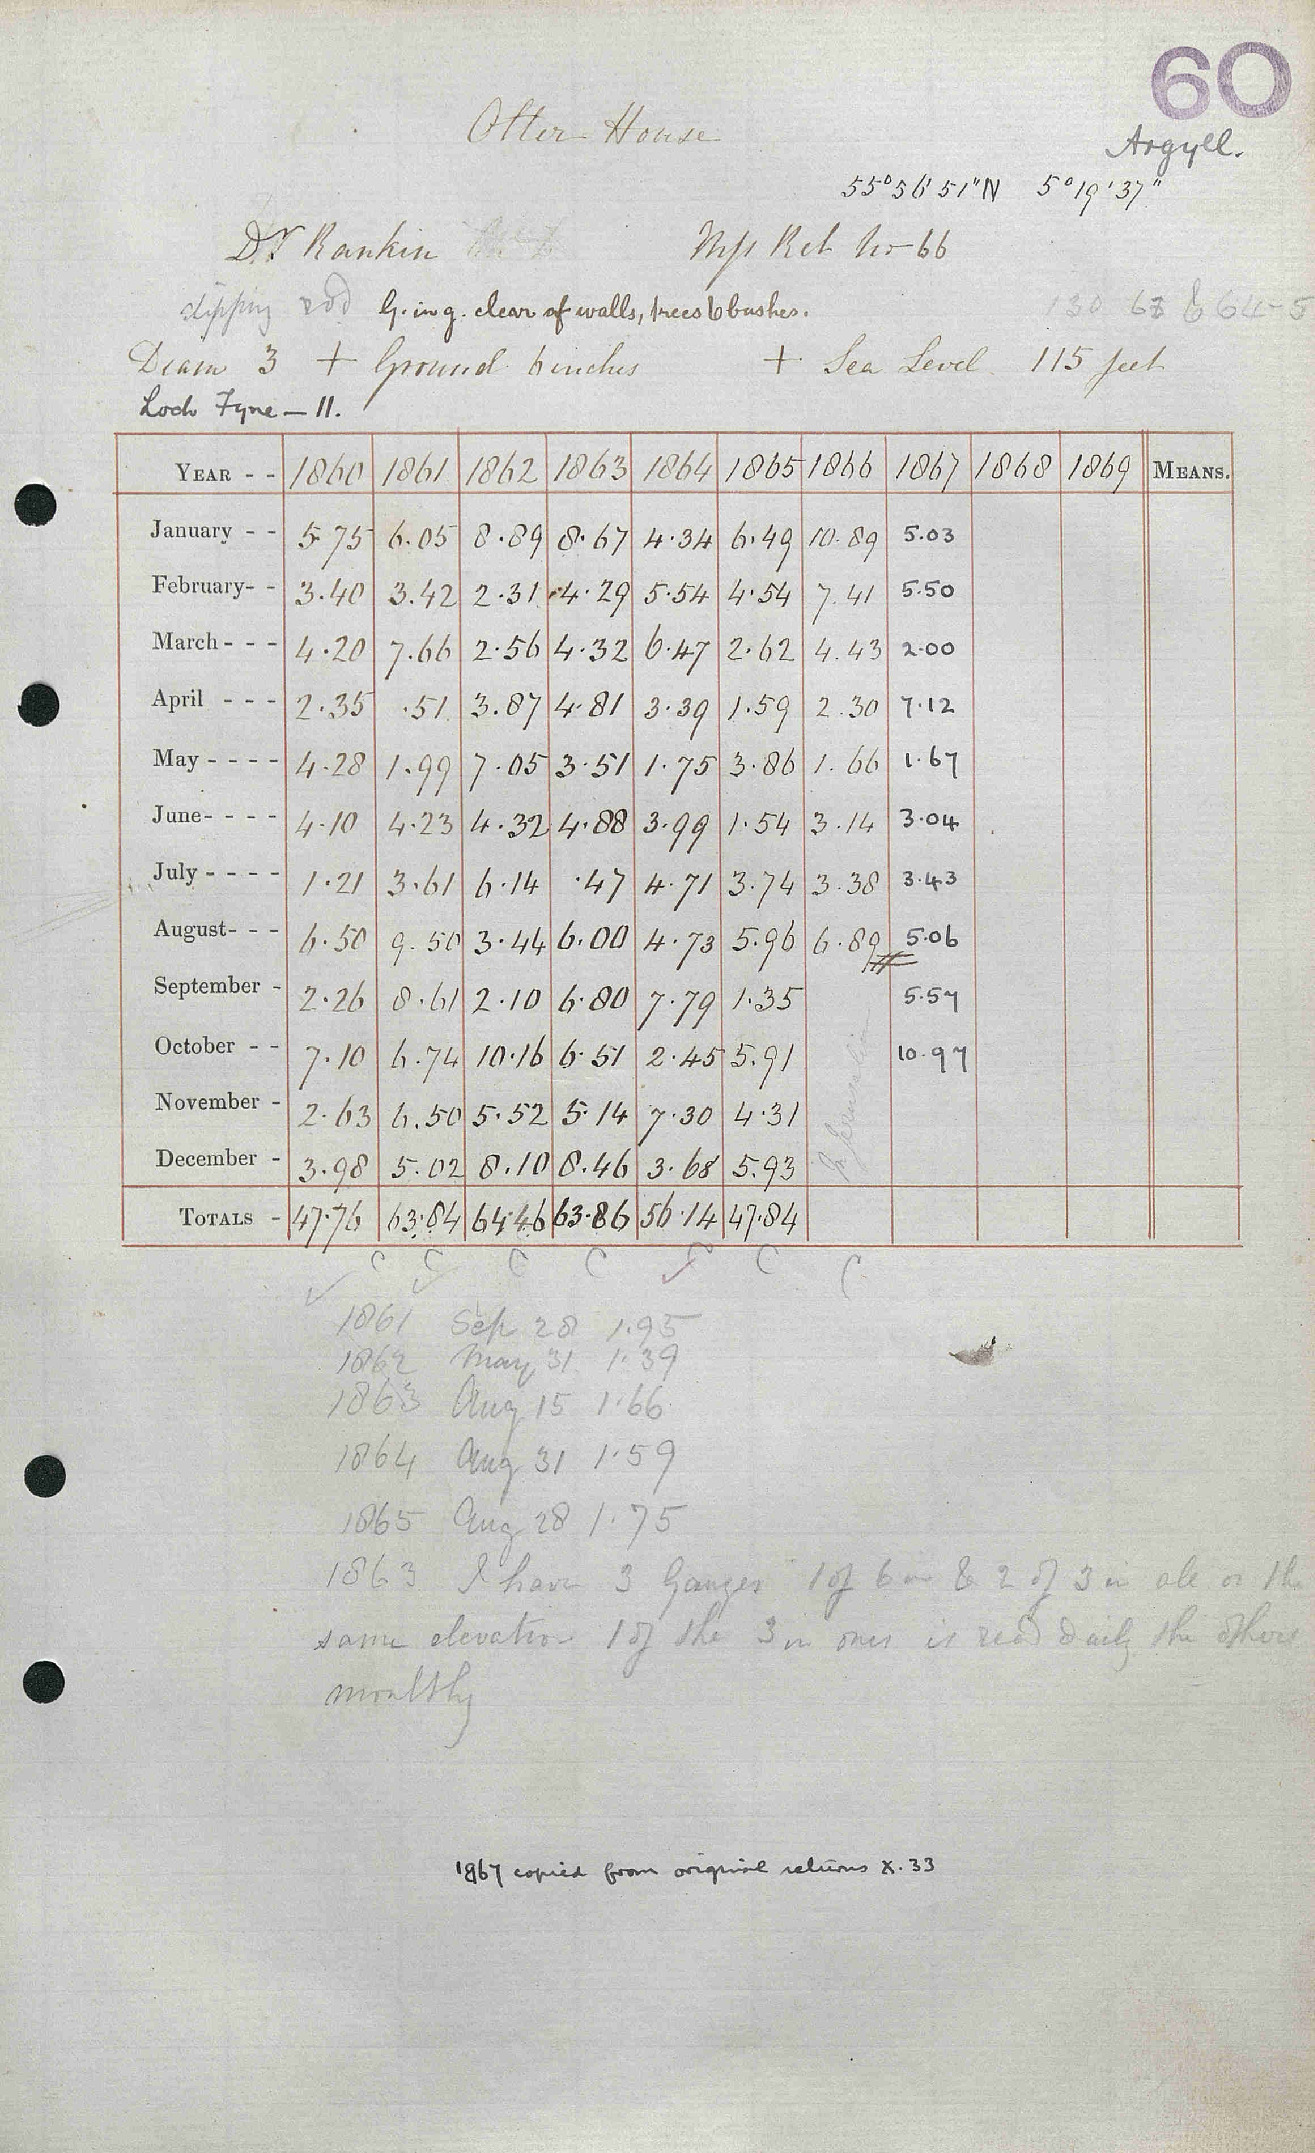 60
Argyll.
Otter House
55° 56' 51" N 5° 19' 37"
Dr Rankin Mss Ret No 66
dipping rod G. in g. clear of walls, trees & bushes.
Diam 3 + Ground 6 inches + Sea Level 115 feet
Loch Fyne — 11.
YEAR - - 1860 1861 1862 1863 1864 1865 1866 1867 1868 1869 MEANS.
January - - 5.75 6.05 8.89 8.67 4.34 6.49 10.89 5.03
February- - 3.40 3.42 2.31 4.29 5.54 4.54 7.41 5.50
March - - - 4.20 7.66 2.56 4.32 6.47 2.62 4.43 2.00
April - - - 2.35 .51 3.87 4.81 3.39 1.59 2.30 7.12
May - - - - 4.28 1.99 7.05 3.51 1.75 3.86 1.66 1.67
June- - - - 4.10 4.23 4.32 4.88 3.99 1.54 3.14 3.04
July - - - - 1.21 3.61 6.14 .47 4.71 3.74 3.38 3.43
August- - - 6.50 9.50 3.44 6.00 4.73 5.96 6.89 5.06
September - 2.26 8.61 2.10 6.80 7.79 1.35 5.57
October - - 7.10 6.74 10.16 6.51 2.45 5.91 10.97
November - 2.63 6.50 5.52 5.14 7.30 4.31
December - 3.98 5.02 8.10 8.46 3.68 5.93
TOTALS - 47.76 63.84 64.46 63.86 56.14 47.84
1861 Sep 28 1.95
1862 May 31 1.39
1863 Aug 15 1.66
1864 Aug 31 1.59
1865 Aug 28 1.75
1863 I have 3 Gauges 1 of 6 in & 2 of 3 in all on the
same elevation 1 of the 3 in ones is read daily the others
monthly
1867 copied from original returns X.33